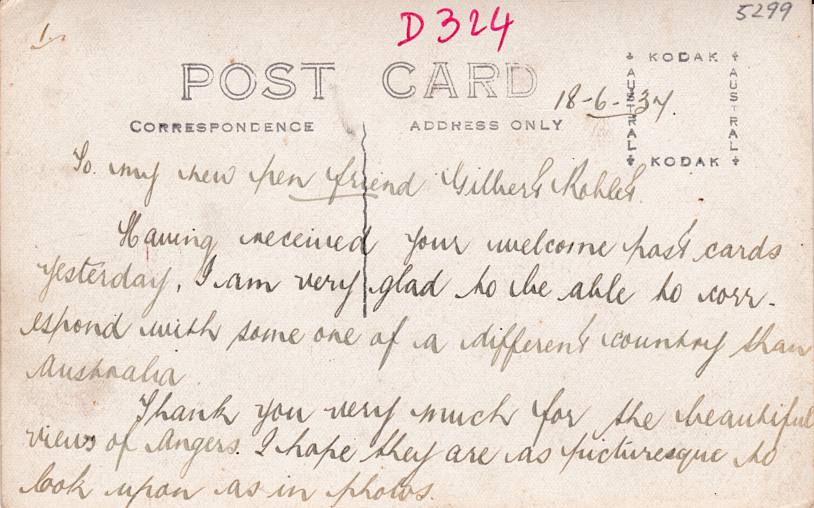 1.
D324
5299
POST CARD
18-6-37.
CORRESPONDENCE
ADDRESS ONLY
KODAK
AUSTRAL
AUSTRAL
KODAK
To. my new pen friend Gilbert
Having received your welcome post cards
yesterday, I am very glad to be able to corr-
espond with some one of a different country than
Australia.
Thank you very much for the beautiful
views of Angers. I hope they are as picturesque to
look upon as in photos.